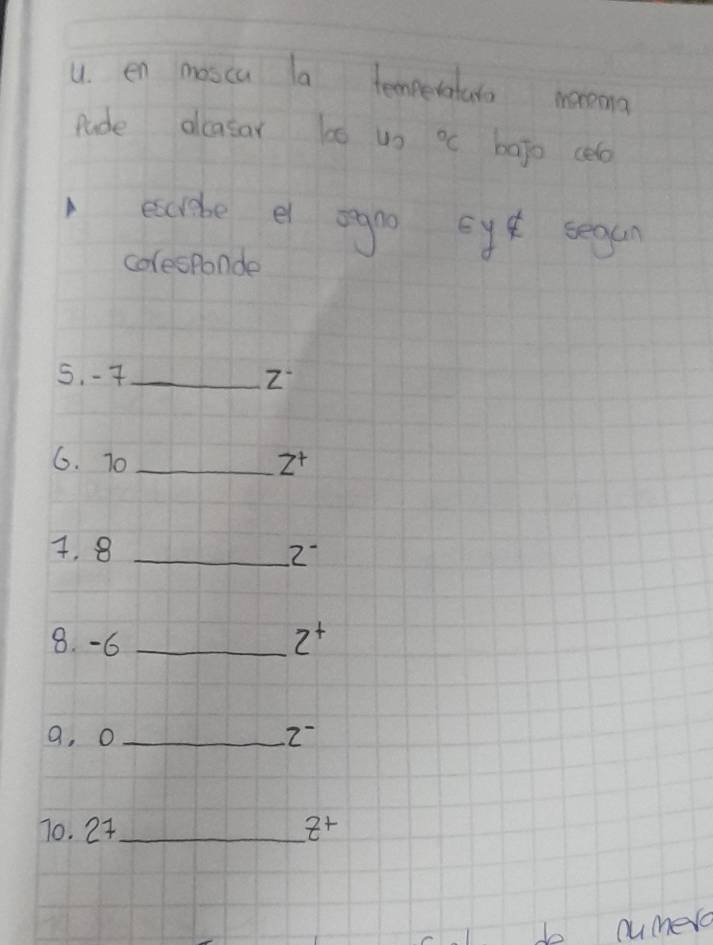 4. en moscu la temperatura
Pude alcasar los 40 °c bajo cero
escribe el signo ∈ y ∉ segun
coresponde
5. -7 ________ Z-
6. 10 ________ Z+
7. 8 ________ Z-
8. -6 ________ Z+
9. 0 ________ Z-
10. 27 ________ Z+
de numero